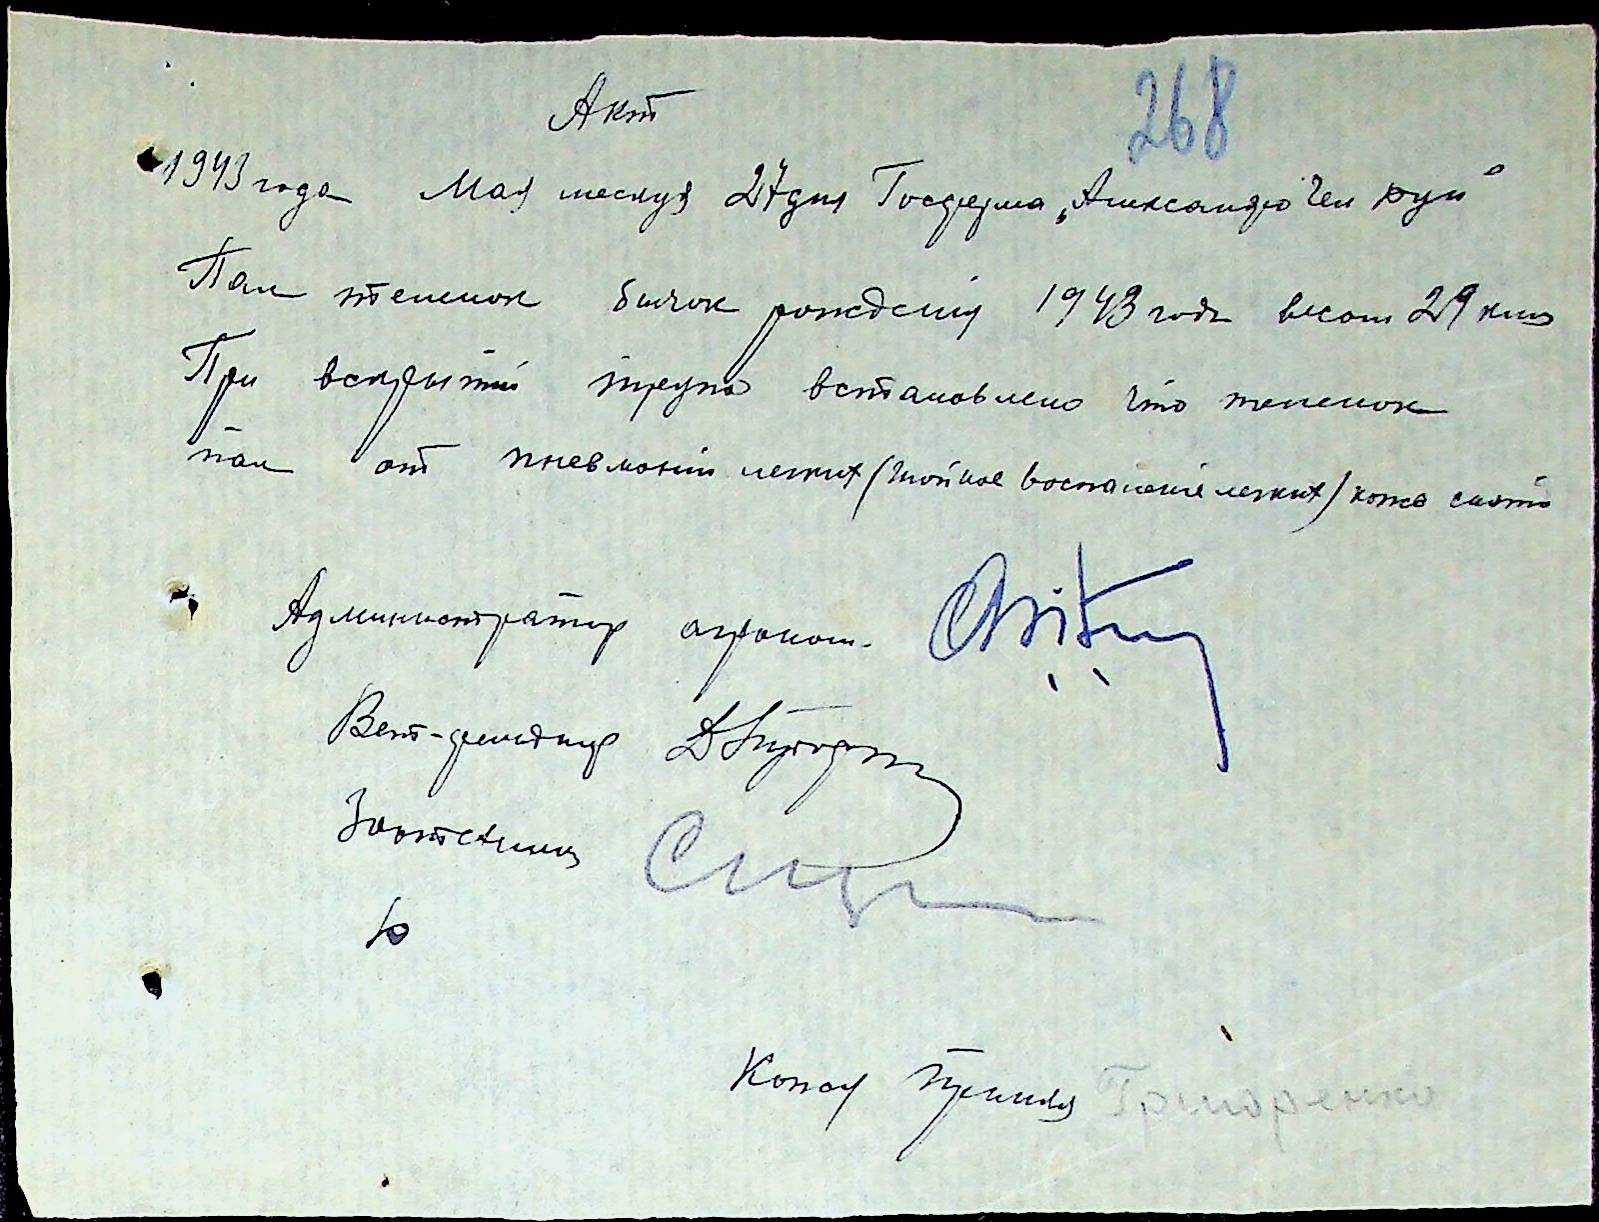 268
Акт
1943 года Мая месяця 27 дня Госферма „Александро
Пал теленок бычок рождения 1943 года весом 29 кило
При вскрытии трупа встановлено что теленок
пал от пневмонии легких (гнойное воспаление легких) кожа снята
Администратор агроном.
Вет-фельдшер
Зоотехник
Кожу принял Григоренко